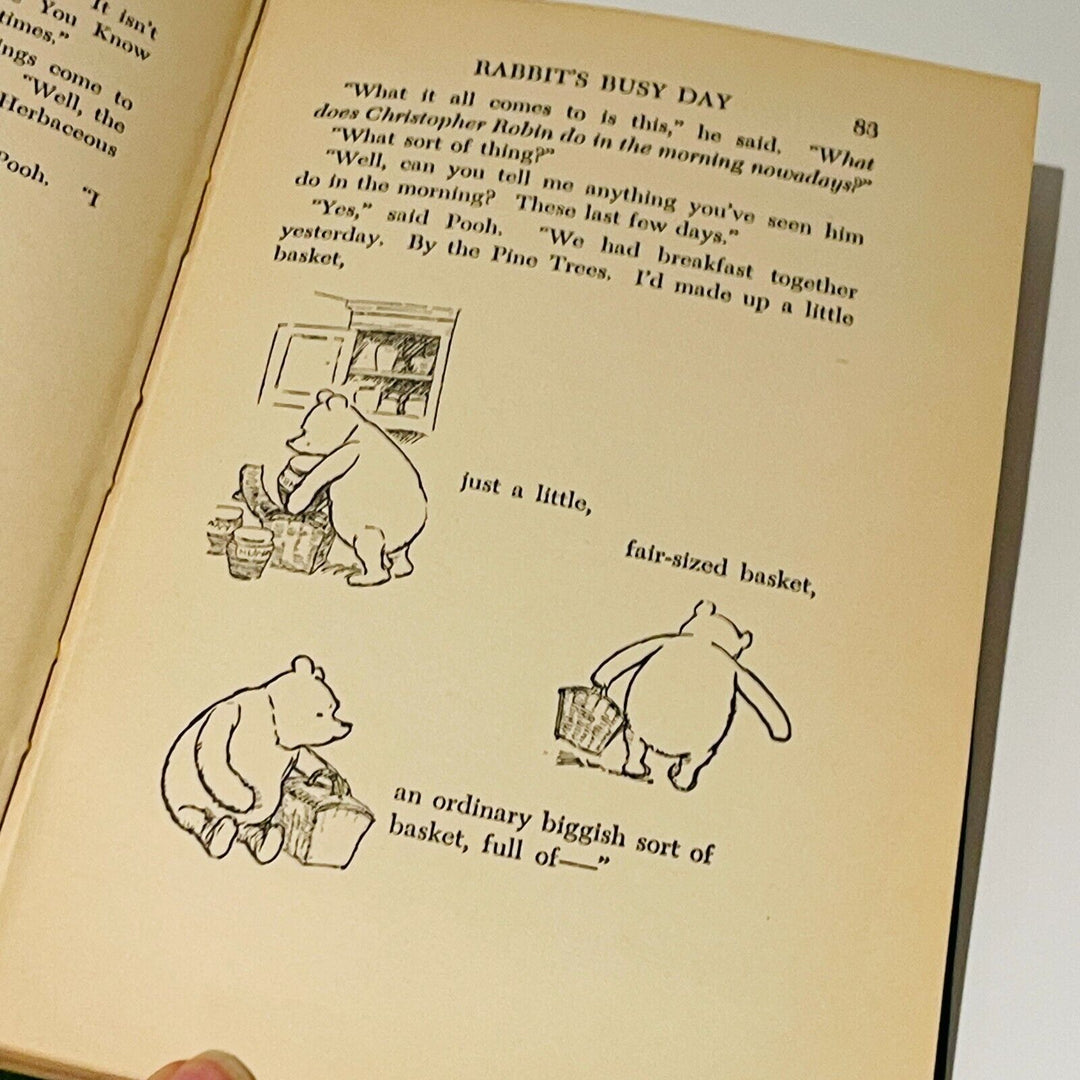 It isn't
You Know
times."
ngs come to
"Well, the
Herbaceous
Pooh. "I
RABBIT'S BUSY DAY 83
"What it all comes to is this," he said. "What
does Christopher Robin do in the morning nowadays?"
"What sort of thing?"
"Well, can you tell me anything you've seen him
do in the morning? These last few days."
"Yes," said Pooh. "We had breakfast together
yesterday. By the Pine Trees. I'd made up a little
basket,
just a little,
fair-sized basket,
an ordinary biggish sort of
basket, full of—"